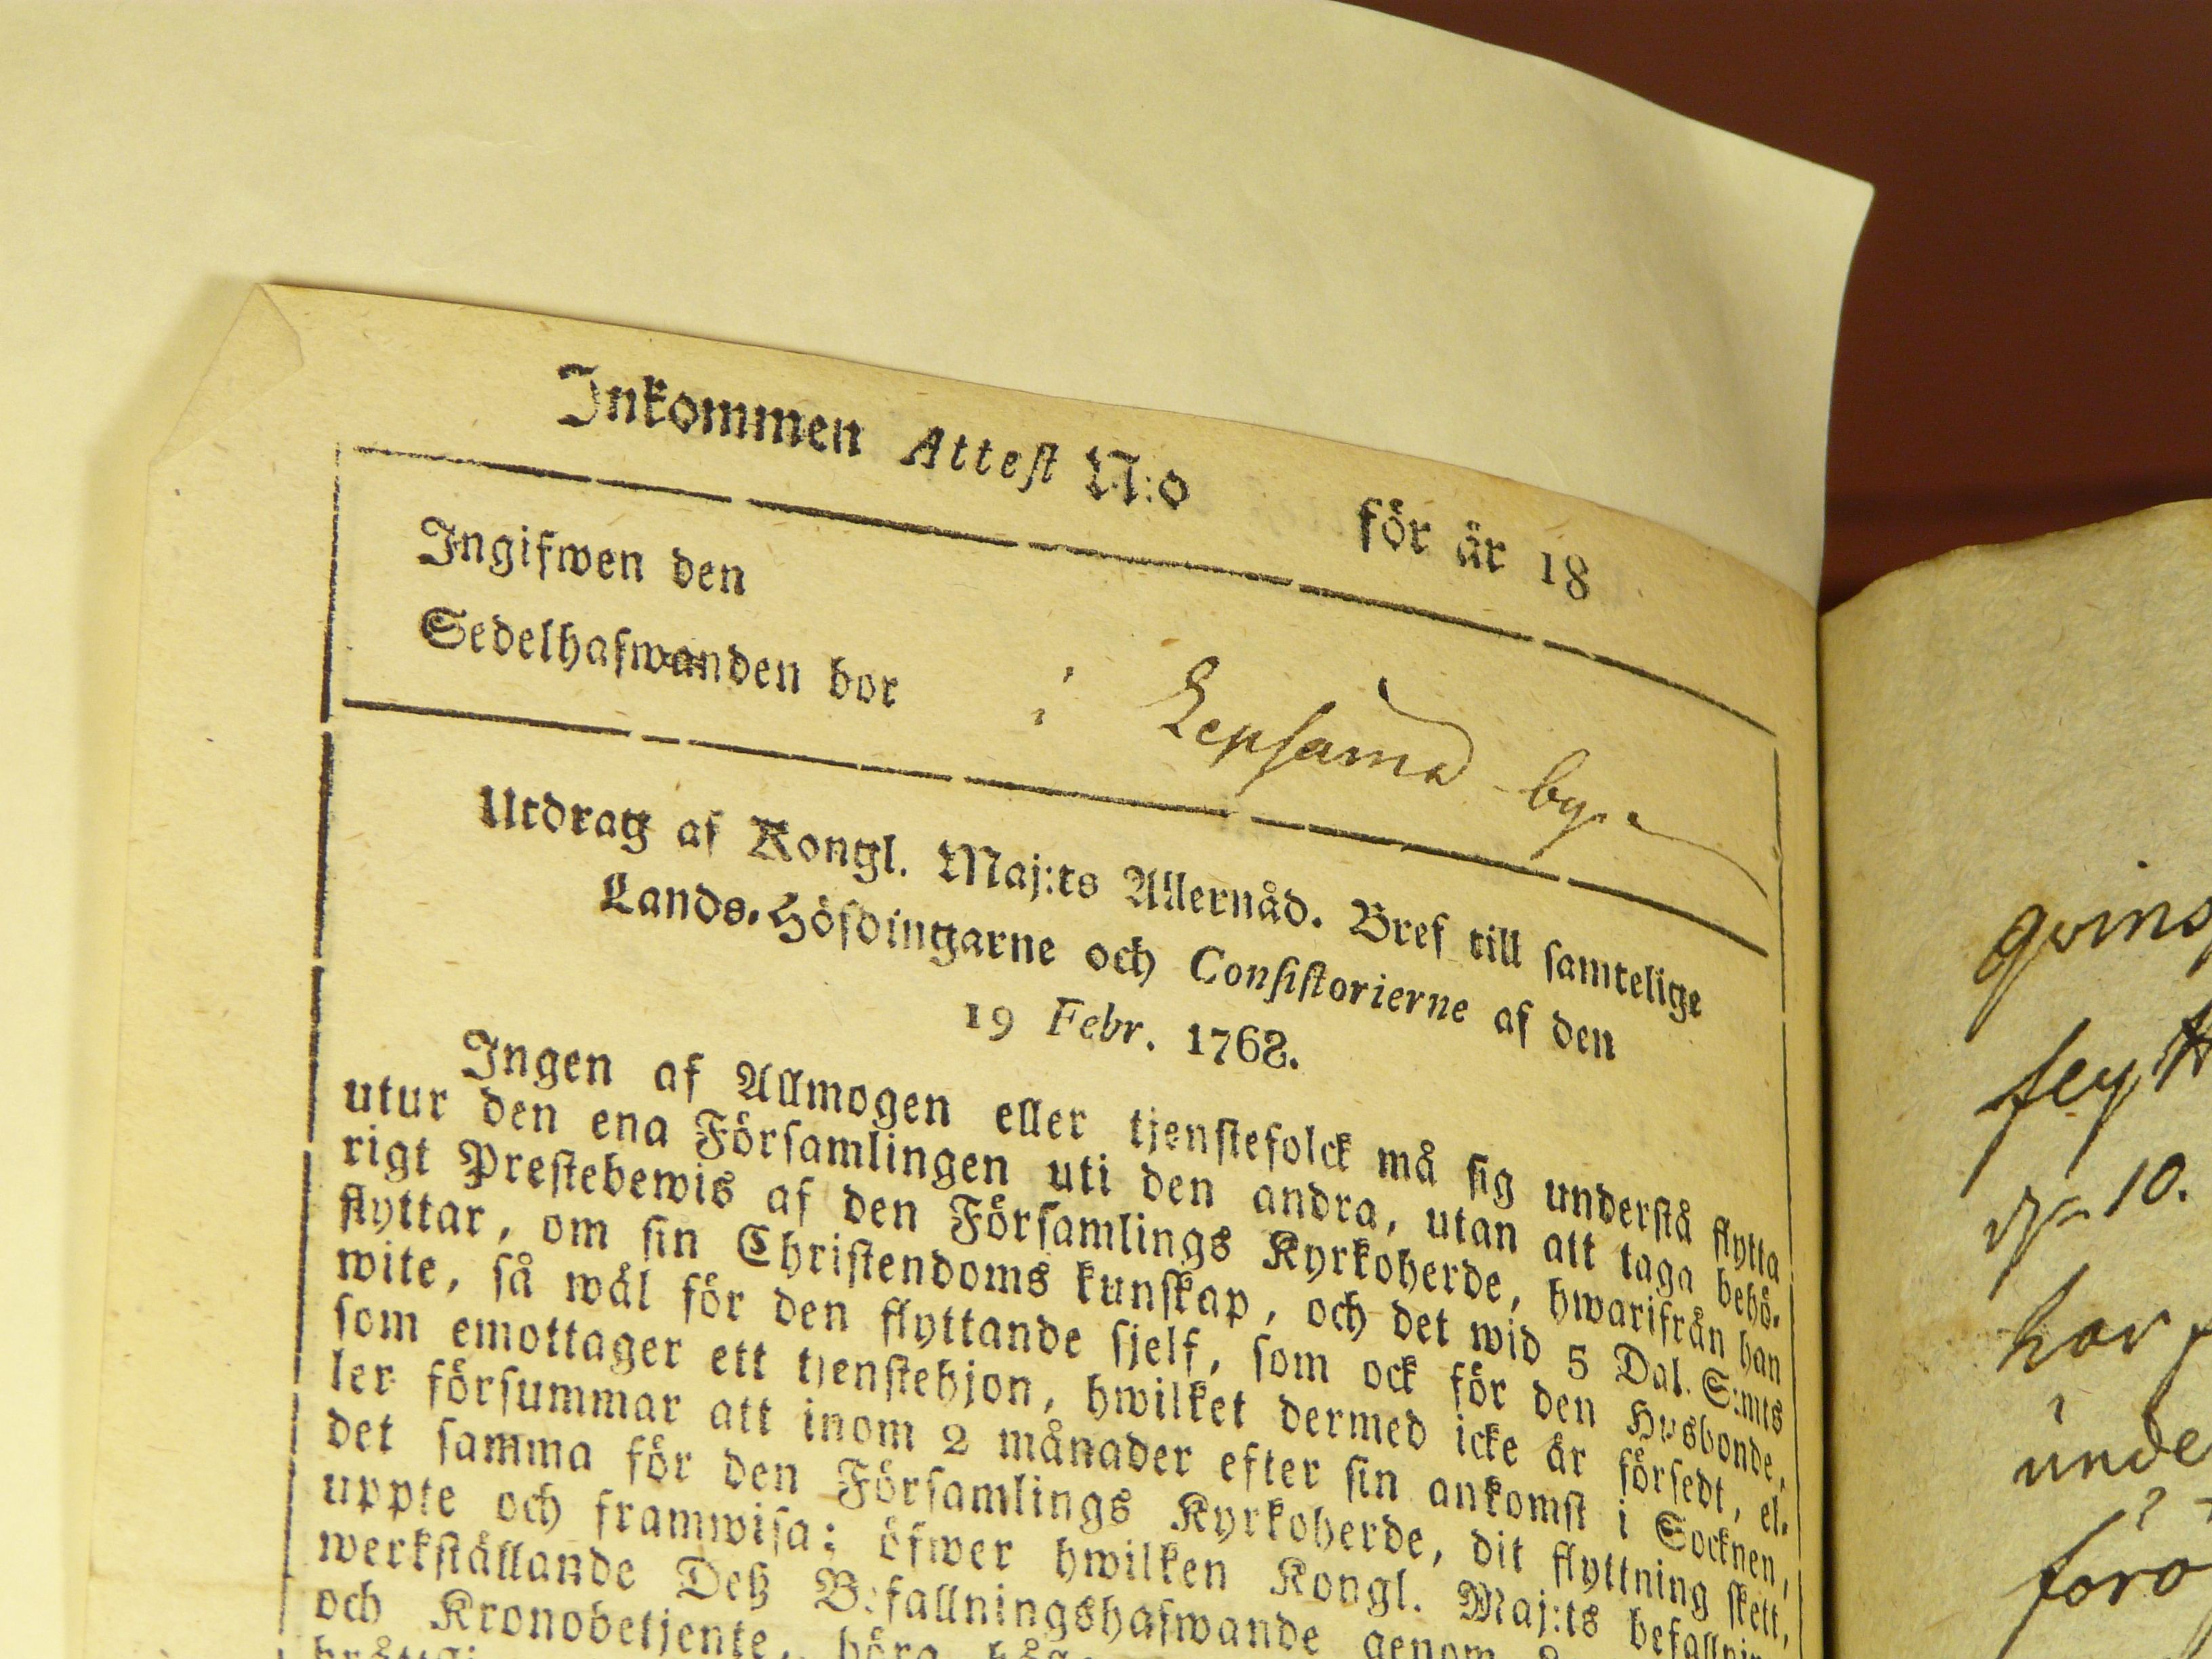 Inkommen Attest N:o för år 18
Ingifwen den
Sedelhafwanden bor i Lepsämä by.
Utdrag af Kongl. Maj:ts Allernåd. Bref till samtelige
Lands-Höfdingarne och Consistorierne af den
19 Febr. 1768.
Ingen af Allmogen eller tjenstefolck må sig understå flytta
utur den ena Församlingen uti den andra, utan att taga behö-
rigt Prestebewis af den Församlings Kyrkoherde, hwarifrån han
flyttar, om sin Christendoms kunskap, och det wid 5 Dal. S:mts
wite, så wäl för den flyttande sjelf, som ock för den Husbonde,
som emottager ett tjenstehjon, hwilket dermed icke är försedt, el-
ler försummar att inom 2 månader efter sin ankomst i Socknen,
det samma för den Församlings Kyrkoherde, dit flyttning skett,
uppte och framwisa; öfwer hwilken Kongl. Maj:ts
werkställande Deß Befallningshafwande genom
och Kronobetjente, böra
qvins
10.
har
unde